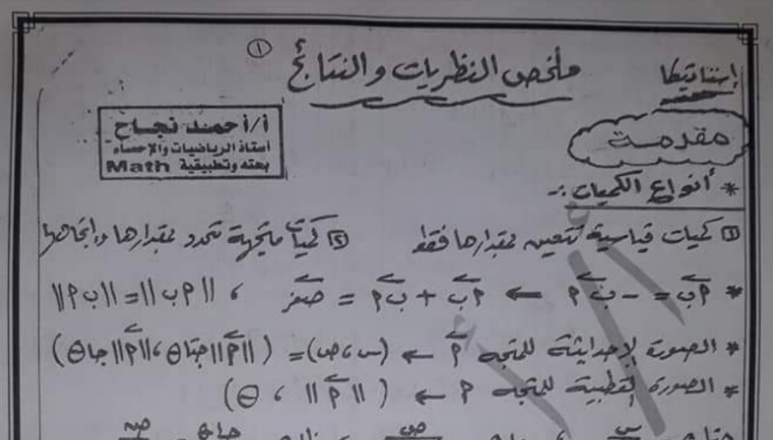 إستاتيكا
ملخص النظريات والنتائج
١
أ/ أحمد نجاح
أستاذ الرياضيات والإحصاء
بحته وتطبيقية Math
مقدمة
* أنواع الكميات :-
① كميات قياسية تتعين بمقدارها فقط ② كميات متجهة تحدد بمقدارها واتجاهها
* أب = - ب أ ← أب + ب أ = صفر ، ||أب|| = ||ب أ||
* الصورة الإحداثية للمتجه أ ← (س ، ص) = (||أ|| جتا θ ، ||أ|| جا θ)
* الصورة القطبية للمتجه أ ← (||أ|| ، θ)